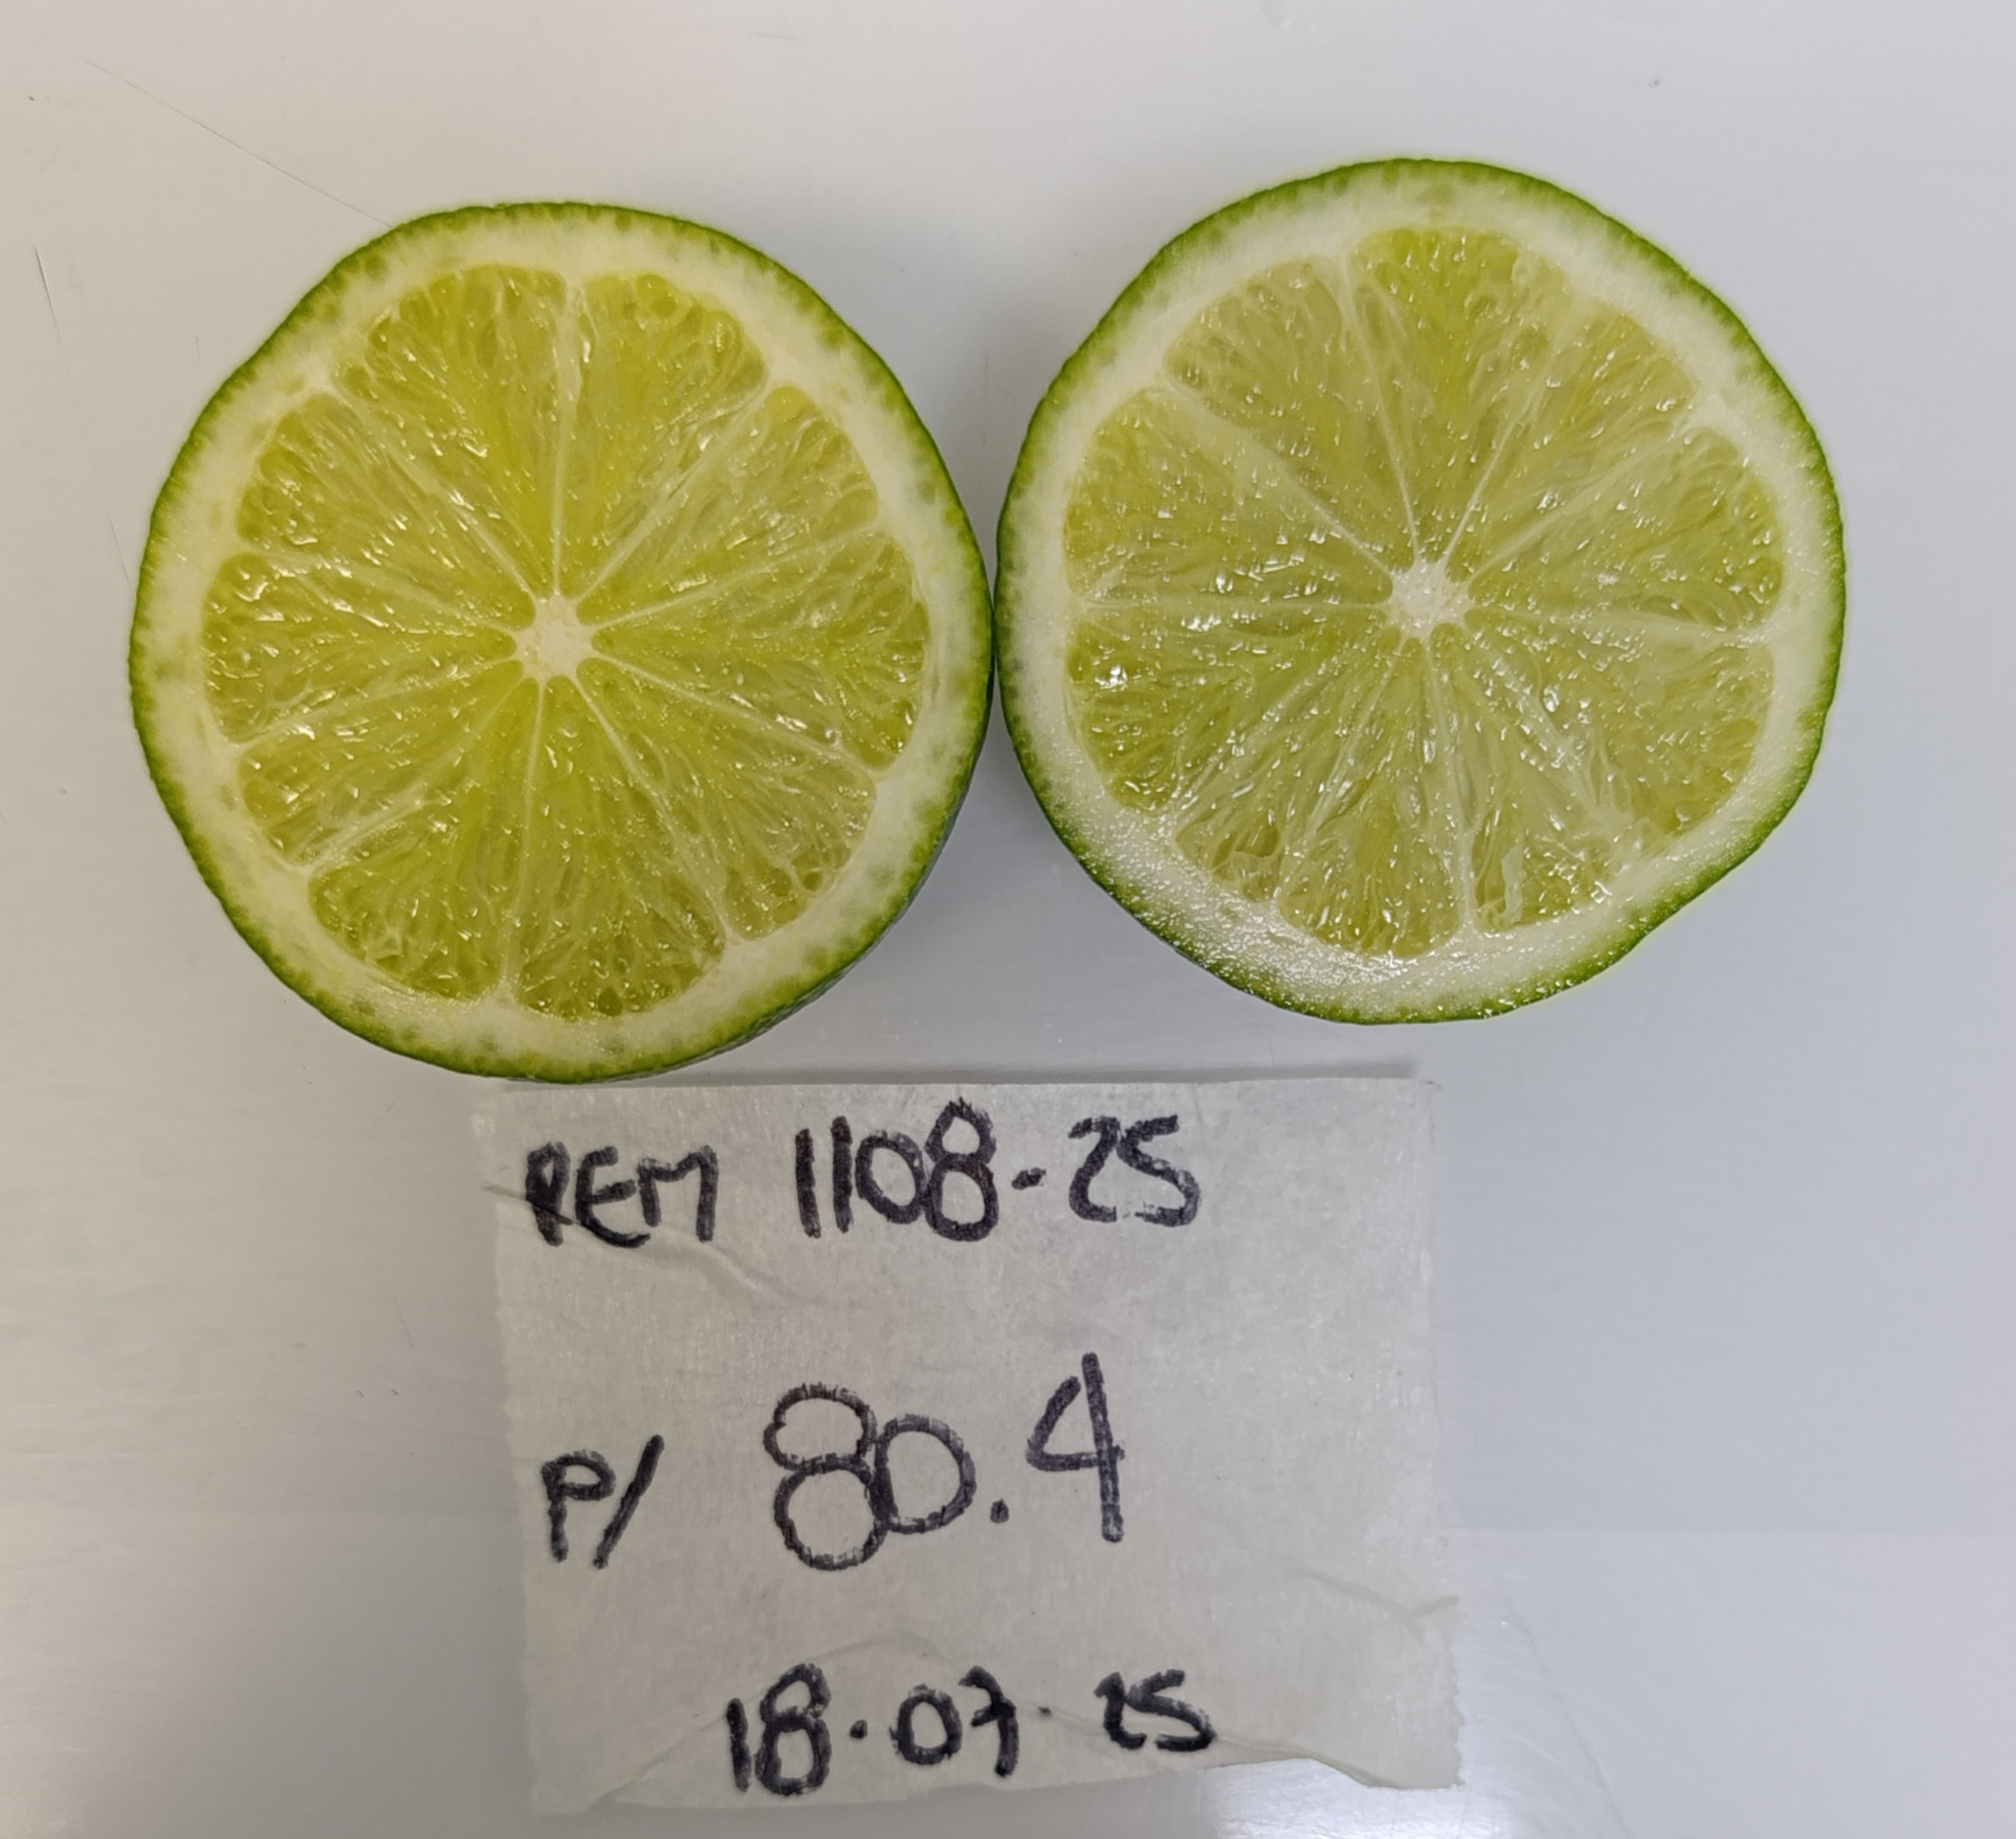 REM 1108-25
P/ 80.4
18.07.25